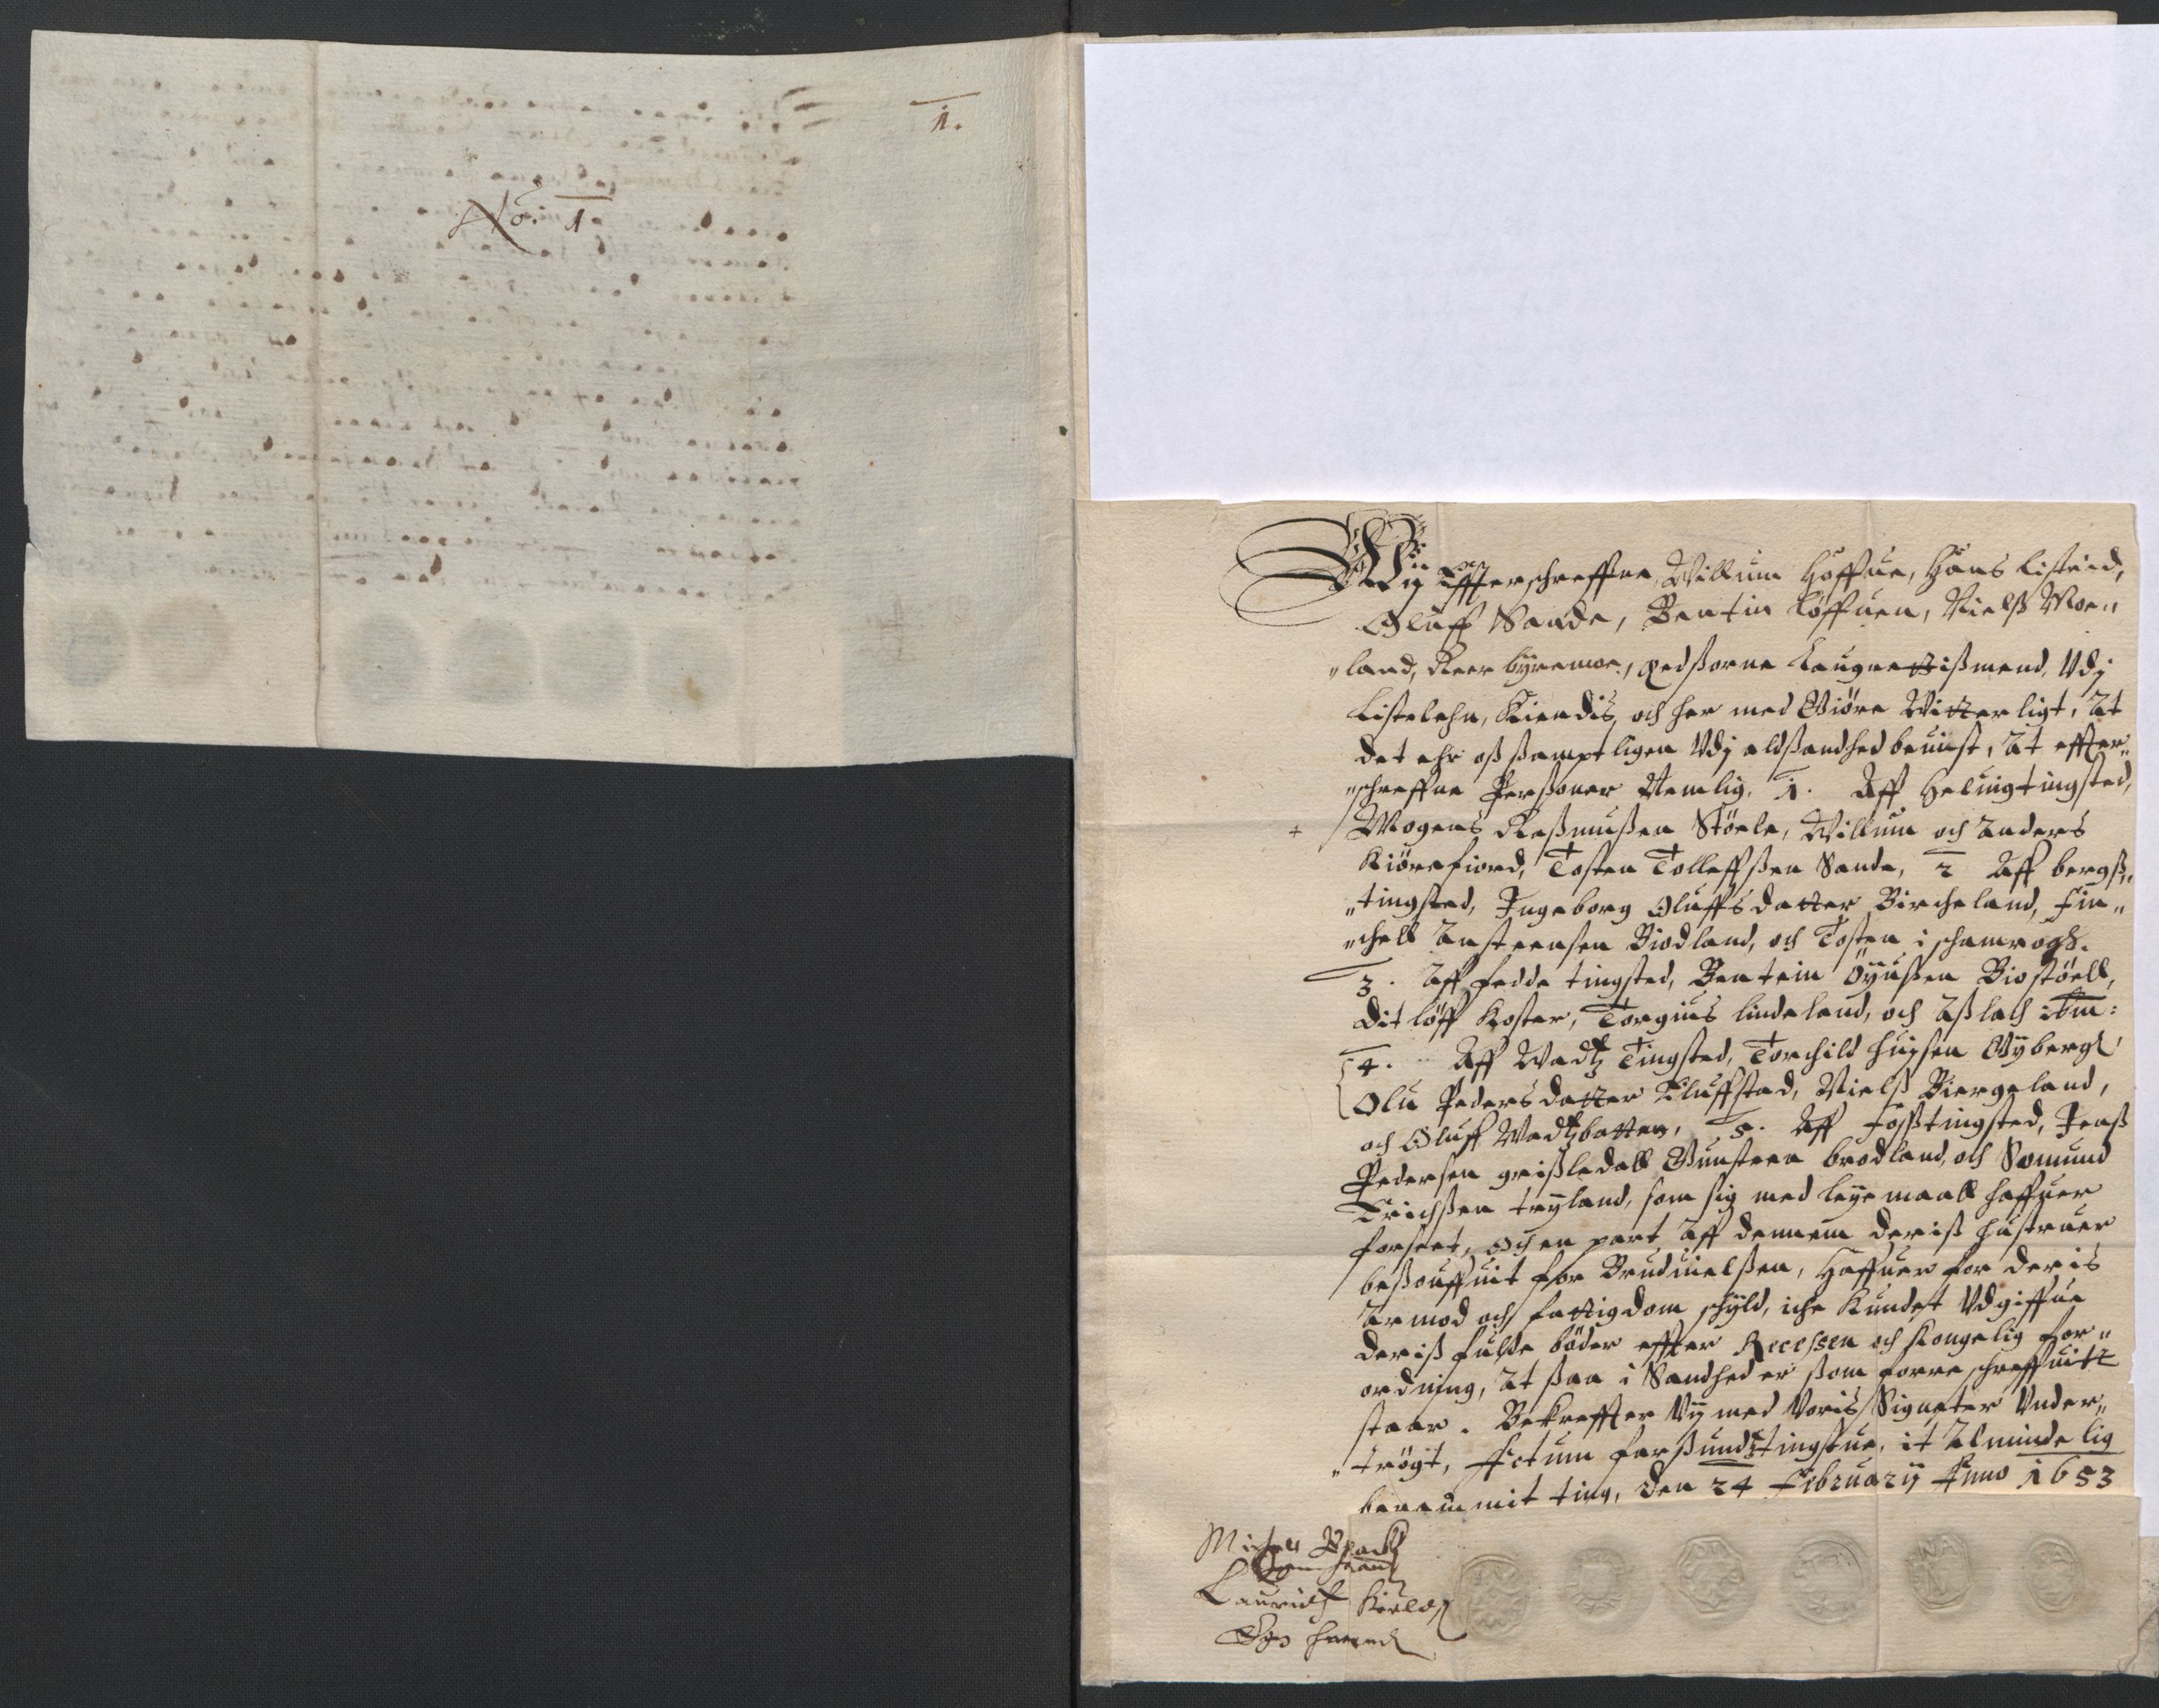 1.
No: 1
Wij Effterschreffne Willum Hoffue, Hans Listeid,
Oluff Sande, Bentin Löffuen, Nielß Moe„
„land, Reer byremoe, Edßorne Laugrettißmend Udj
Listelehn, Kiendis och her med Giöre Witterligt, At
det ehr oß samptligen Udj aldßandhed beuist, At effter„
„schreffne Perßoner Nemlig, 1. Aff Heluigtingsted,
Mogens Raßmußen Stöele, Willum och Anders
Kiörefiord, Tosten Tolleffßen Sande, 2 Aff bergß„
„tingsted, Ingeborg Oluffs datter Bircheland, Fin„
„chell Ansteensen Biodland, och Tosten i schamrogh.
3. Aff fedde tingsted, Bentein Öyußen Biostöell,
Ditlöff Koster, Torgius lindeland, och Aßlach ibm:
4. Aff Wadtz Tingsted, Torchild Huißen Gyberg,
Olu Peders datter Eluffstad, Nielß Biergeland,
och Oluff Wadtzbatten, 5. Aff Foßtingsted, Jenß
Pedersen greißledall Gunsteen brodland, och Somund
Erichßen tryland, som sig med leyemaall haffuer
forseet, Och en part Aff dennem deriß hustruer
beßouffuit for Brudvielßen, Haffuer for deris
Armod och fattigdom schyld, iche Kundet Udgiffue
deriß fulde böder effter Recessen och Kongelig for„
ordning, At ßaa i Sandhed er ßom forreschreffuitt
staar. Bekreffter Vij med Voris Signeter Under„
„trögt, Actum farßundtztingstue, it Almindelig
beremmit ting, Den 24 Februarij Anno 1653
Egen haand
Lauridß
Egn haand